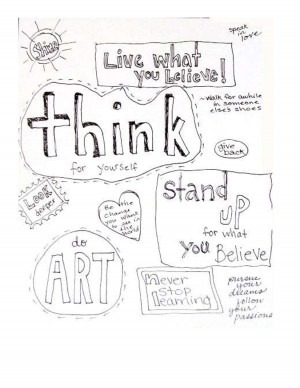 Shine
speak
in
love
Live what
you believe!
think
for yourself
~walk for awhile
in someone
else's shoes
give
back
Look
deeper
Be the
change
you want
to see in
the
world
Stand
UP
for what
you Believe
do
ART
never
stop
learning
pursue
your
dreams
follow
your
passions